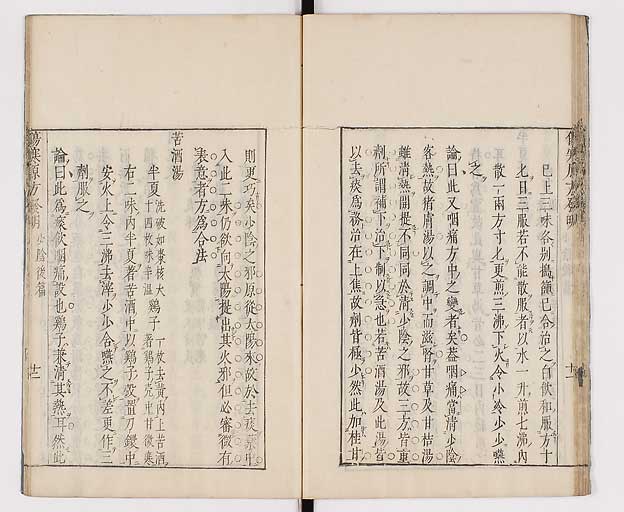 已上三味各別搗篩已合治之白飲和服方寸
匕日三服若不能散服者以水一升煎七沸內
散一兩方寸匕更煎三沸下火令小冷少少嚥
之
論曰此又咽痛方中之變者矣葢咽痛當清少陰
客熱故猪膚湯以之調中而滋腎甘草及甘桔湯
雖清熱開提不同同於清少陰之邪故三方皆重
劑所謂補下治下制以急也若苦酒湯及此湯皆
以去痰爲務治在上焦故劑皆極少然此加桂甘
則更巧矣少陰之邪原從太陽來故於去痰藥中
入此二味仍欲向太陽提出其火邪但必審微有
表意者方爲合法
苦酒湯
半夏 洗破如棗核大十四枚味辛溫 鷄子 一枚去黃內上苦酒著鷄子壳中甘微寒
右二味內半夏著苦酒中以鷄子殼置刀鐶中
安火上令三沸去滓少少含嚥之不差更作三
劑服之
論曰此爲痰飲咽痛設也鷄子兼清其熱耳然此
傷寒原方發明 少陰後篇 十二